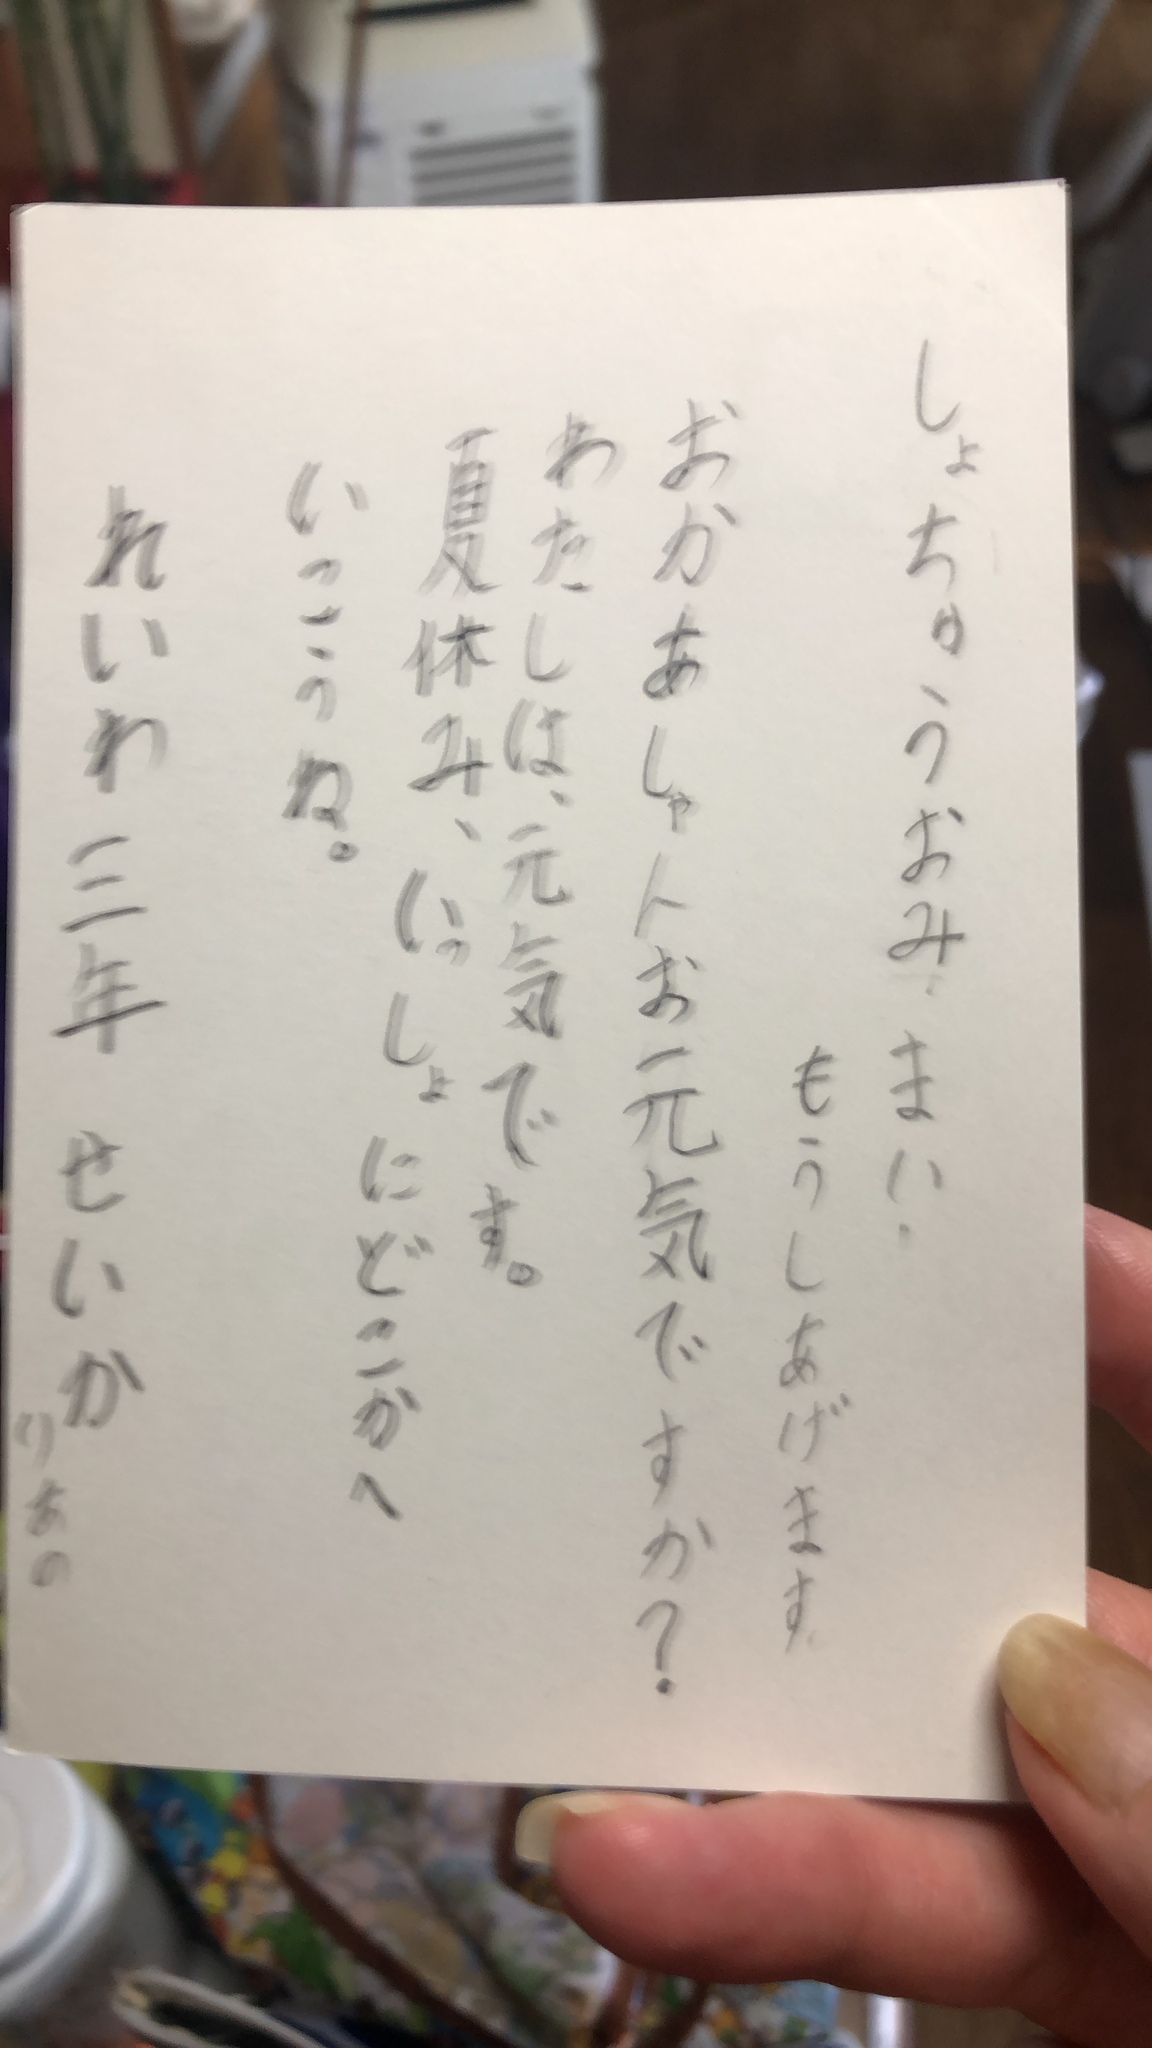 しょちゅうおみまい
もうしあげます
おかあしゃんお元気ですか？
わたしは、元気です。
夏休み、いっしょにどこかへ
いっこうね。
れいわ三年 せいか
りあの